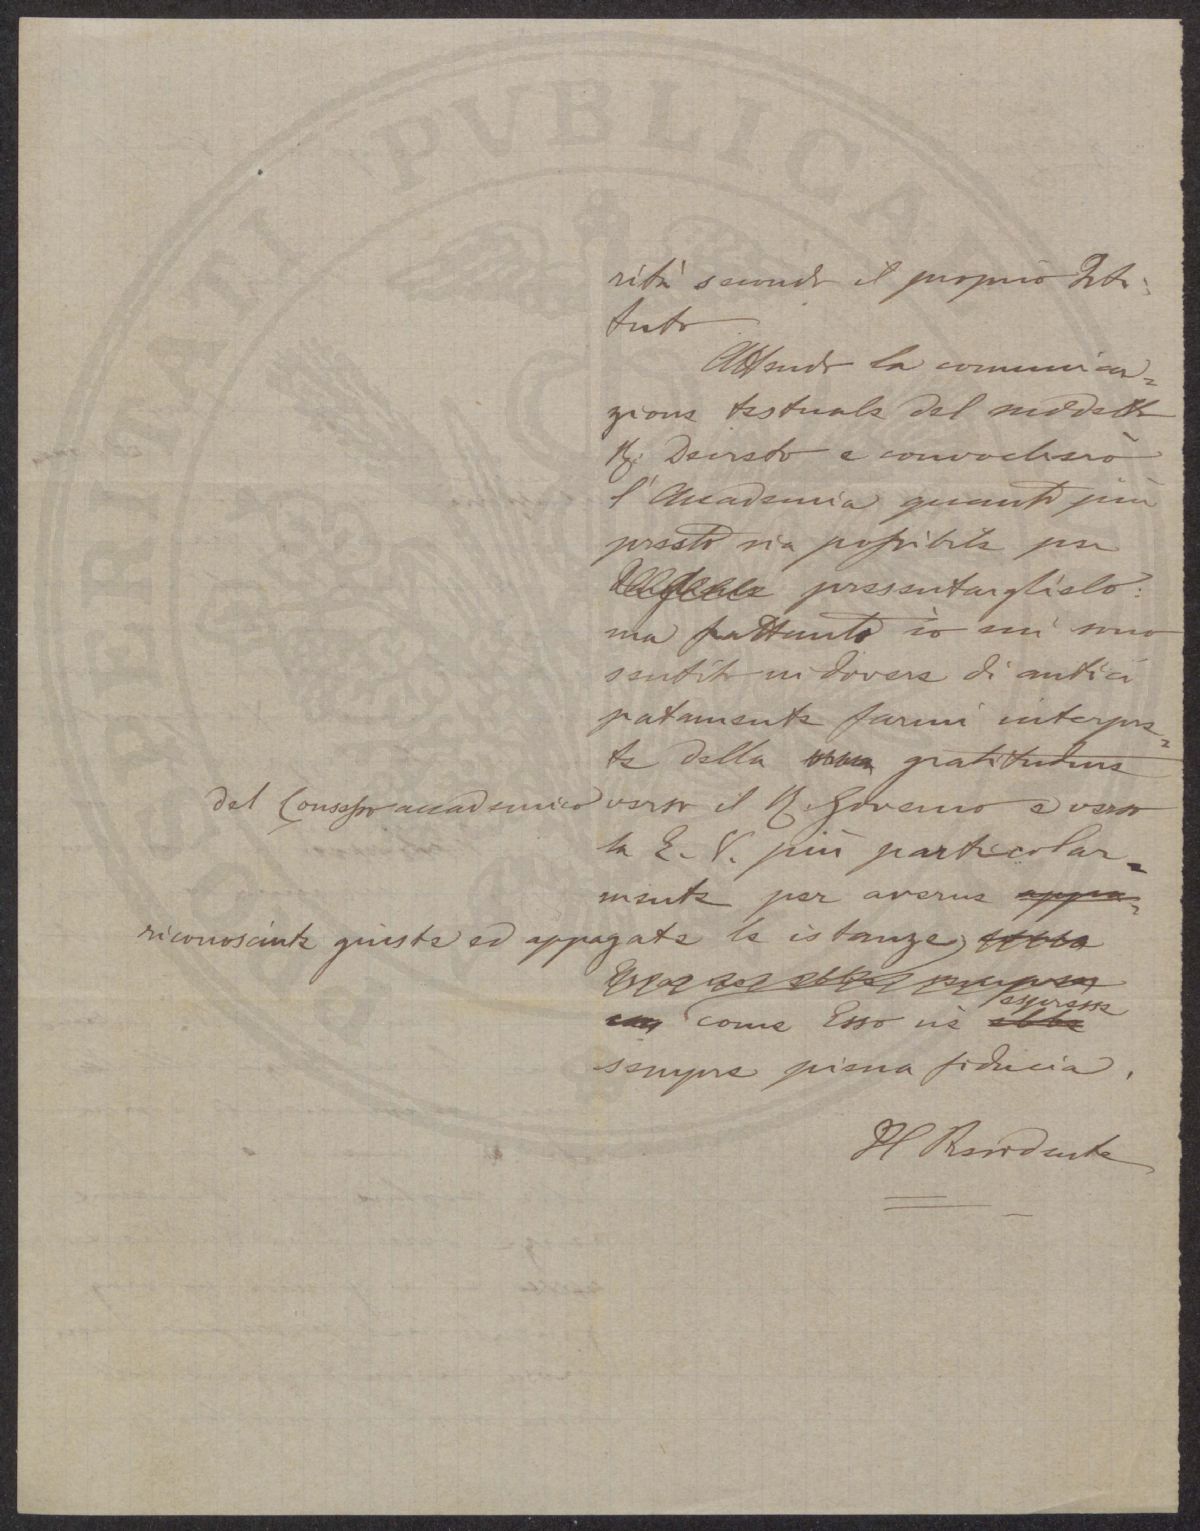 PVBLICAE
rità secondo il proprio Isti-
tuto
Attendo la comunica=
zione testuale del suddetto
R. Decreto e convocherò
l'Accademia quanto più
presto sia possibile per
presentarglielo:
ma frattanto io mi sono
sentito in dovere di antici
patamente farmi interpre=
te della gratitudine
del Consesso accademico verso il R. Governo e verso
la E. V. più particolar=
mente per averne appa-
riconosciute giuste ed appagate le istanze,
come Esso n'è ebbe espresse
sempre piena fiducia.
Il Presidente